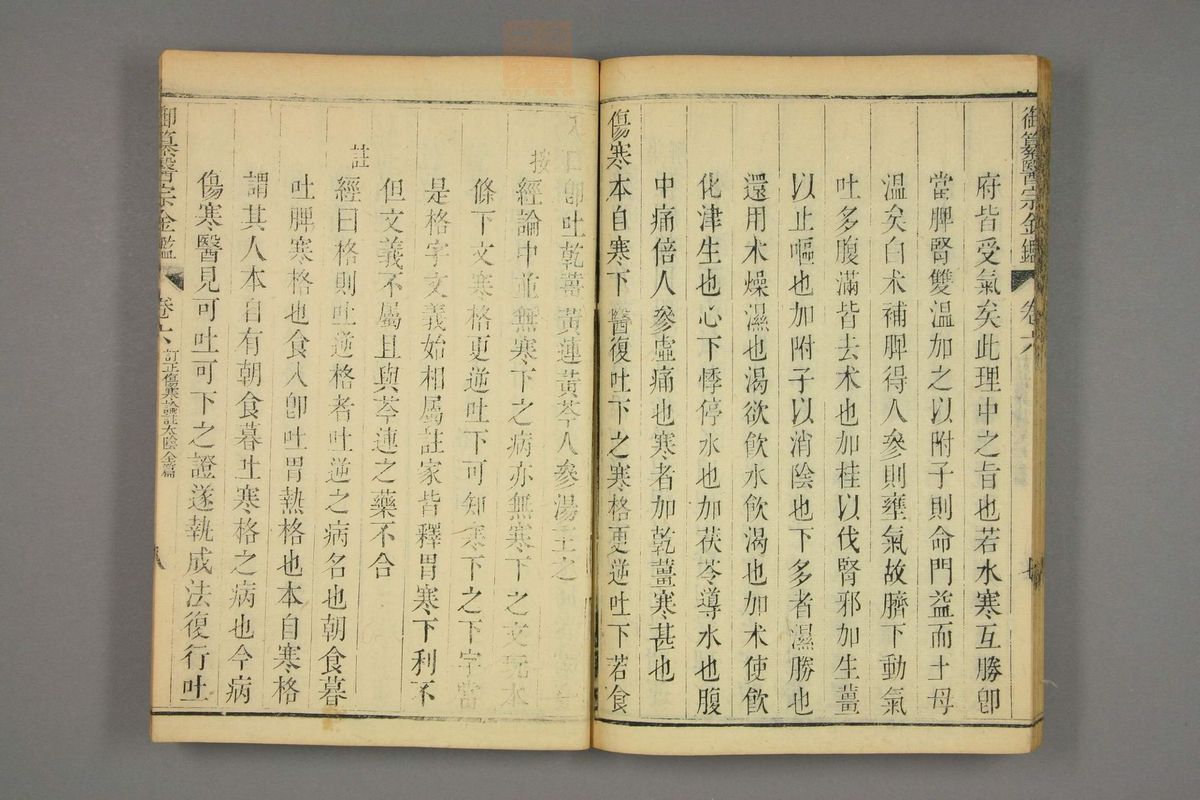 御纂醫宗金鑑 卷六
府皆受氣矣此理中之旨也若水寒互勝卽
當脾腎雙溫加之以附子則命門益而土母
溫矣白术補脾得人參則壅氣故臍下動氣
吐多腹滿皆去术也加桂以伐腎邪加生薑
以止嘔也加附子以消陰也下多者濕勝也
還用术燥濕也渴欲飮水飮渴也加术使飮
化津生也心下悸停水也加茯苓導水也腹
中痛倍人參虛痛也寒者加乾薑寒甚也
傷寒本自寒下醫復吐下之寒格更逆吐下若食
入口卽吐乾薑黃連黃芩人參湯主之
按經論中並無寒下之病亦無寒下之文玩本
條下文寒格更逆吐下可知寒下之下字當
是格字文義始相屬註家皆釋胃寒下利不
但文義不屬且與芩連之藥不合
註經曰格則吐逆格者吐逆之病名也朝食暮
吐脾寒格也食入卽吐胃熱格也本自寒格
謂其人本自有朝食暮吐寒格之病也今病
傷寒醫見可吐可下之證遂執成法復行吐
御纂醫宗金鑑 卷六 訂正傷寒論註太陰全篇